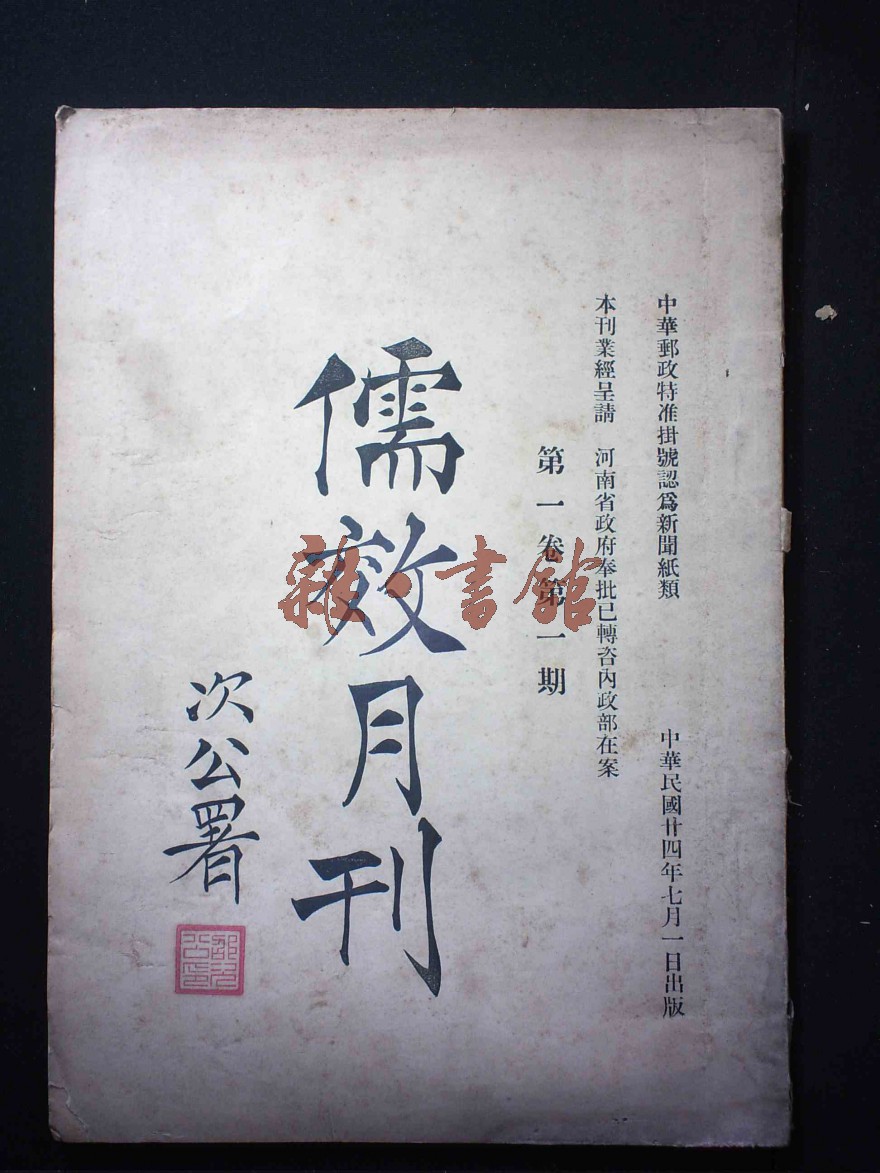 中華郵政特准掛號認爲新聞紙類 中華民國廿四年七月一日出版
本刊業經呈請 河南省政府奉批已轉咨內政部在案
第一卷第一期
儒效月刊
次公署
雜·書館